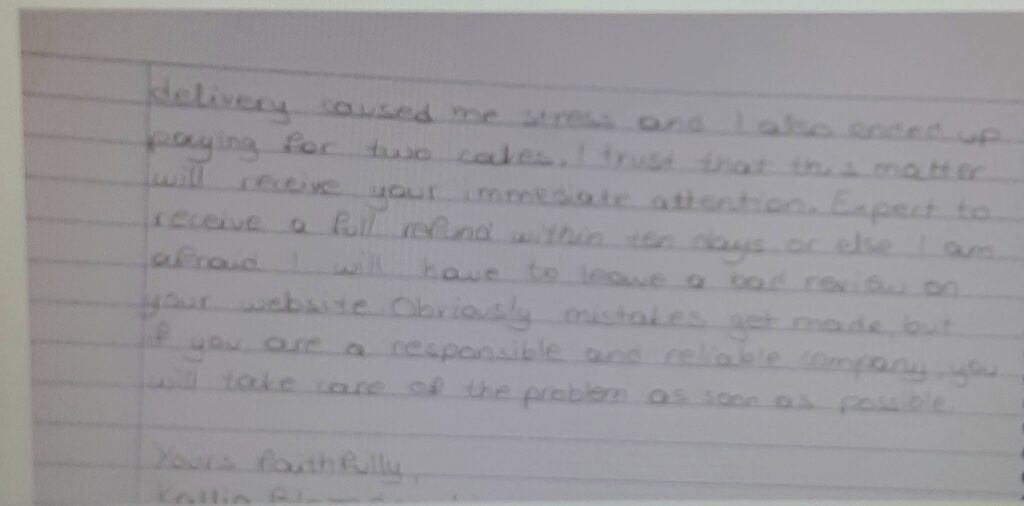 delivery caused me stress and I also ended up
paying for two cakes. I trust that this matter
will receive your immediate attention. Expect to
receive a full refund within ten days or else I am
afraid I will have to leave a bad review on
your website Obviously mistakes get made, but
if you are a responsible and reliable company, you
will take care of the problem as soon as possible.
Yours faithfully,